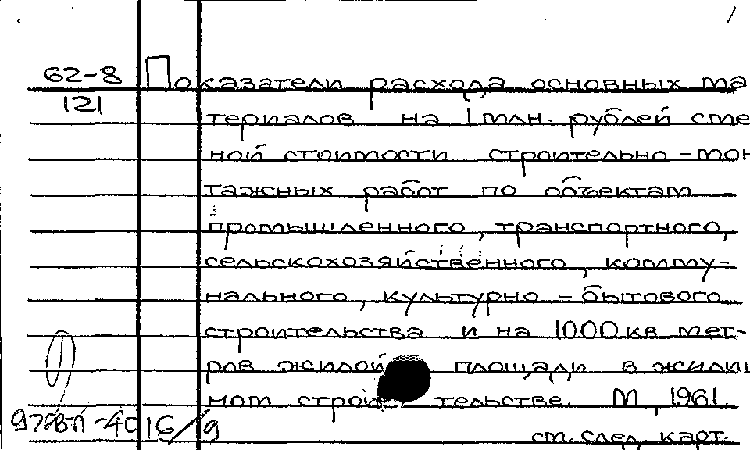 62-8 Показатели расхода основных ма
121 териалов на 1 млн. рублей сме
ной стоимости строительно-мон
тажных работ по объектам
промышленного, транспортного,
сельскохозяйственного, комму-
нального, культурно-бытового
строительства и на 1000 кв мет-
ров жилой площади в жилищ
ном строительстве. М, 1961.
16/9
ст. след. карт.